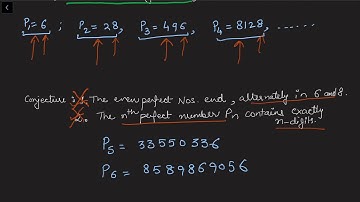 P₁=6 ; P₂ = 28, P₃ = 496, P₄ = 8128, ......
Conjecture : 1. The even perfect Nos. end, alternately in 6 and 8.
2. The nᵗʰ perfect number Pn contains exactly
n-digits.
P₅ = 33550336
P₆ = 8589869056